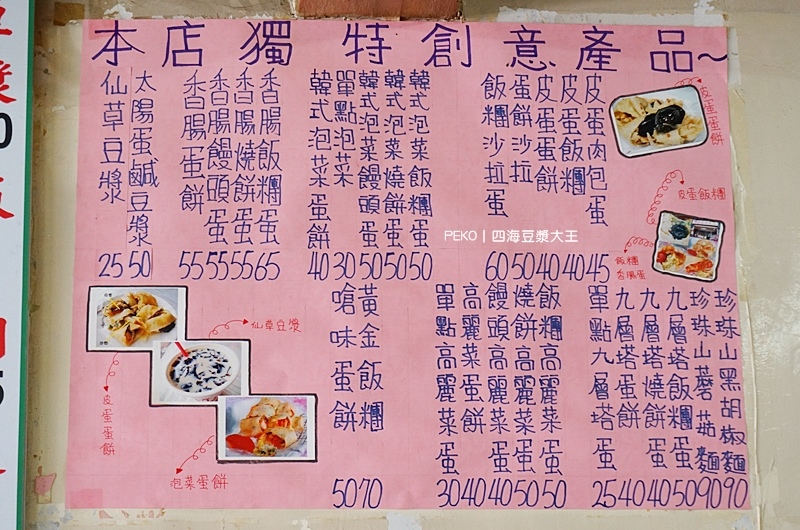 本店獨特創意產品~
皮蛋肉包蛋 45
皮蛋飯糰 40
皮蛋蛋餅 40
蛋餅沙拉 50
飯糰沙拉蛋 60
韓式泡菜飯糰蛋 50
韓式泡菜燒餅蛋 50
韓式泡菜饅頭蛋 50
單點泡菜 30
韓式泡菜蛋餅 40
香腸飯糰蛋 65
香腸燒餅蛋 55
香腸饅頭蛋 55
香腸蛋餅 55
太陽蛋鹹豆漿 50
仙草豆漿 25
皮蛋蛋餅
皮蛋飯糰
飯糰
香腸蛋
PEKO | 四海豆漿大王
珍珠山黑胡椒麵 90
珍珠山蘑菇麵 90
九層塔飯糰蛋 50
九層塔燒餅蛋 40
九層塔蛋餅 40
單點九層塔蛋 25
飯糰高麗菜蛋 50
燒餅高麗菜蛋 50
饅頭高麗菜蛋 40
高麗菜蛋餅 40
單點高麗菜蛋 30
黃金飯糰 70
嗆味蛋餅 50
仙草豆漿
皮蛋蛋餅
泡菜蛋餅